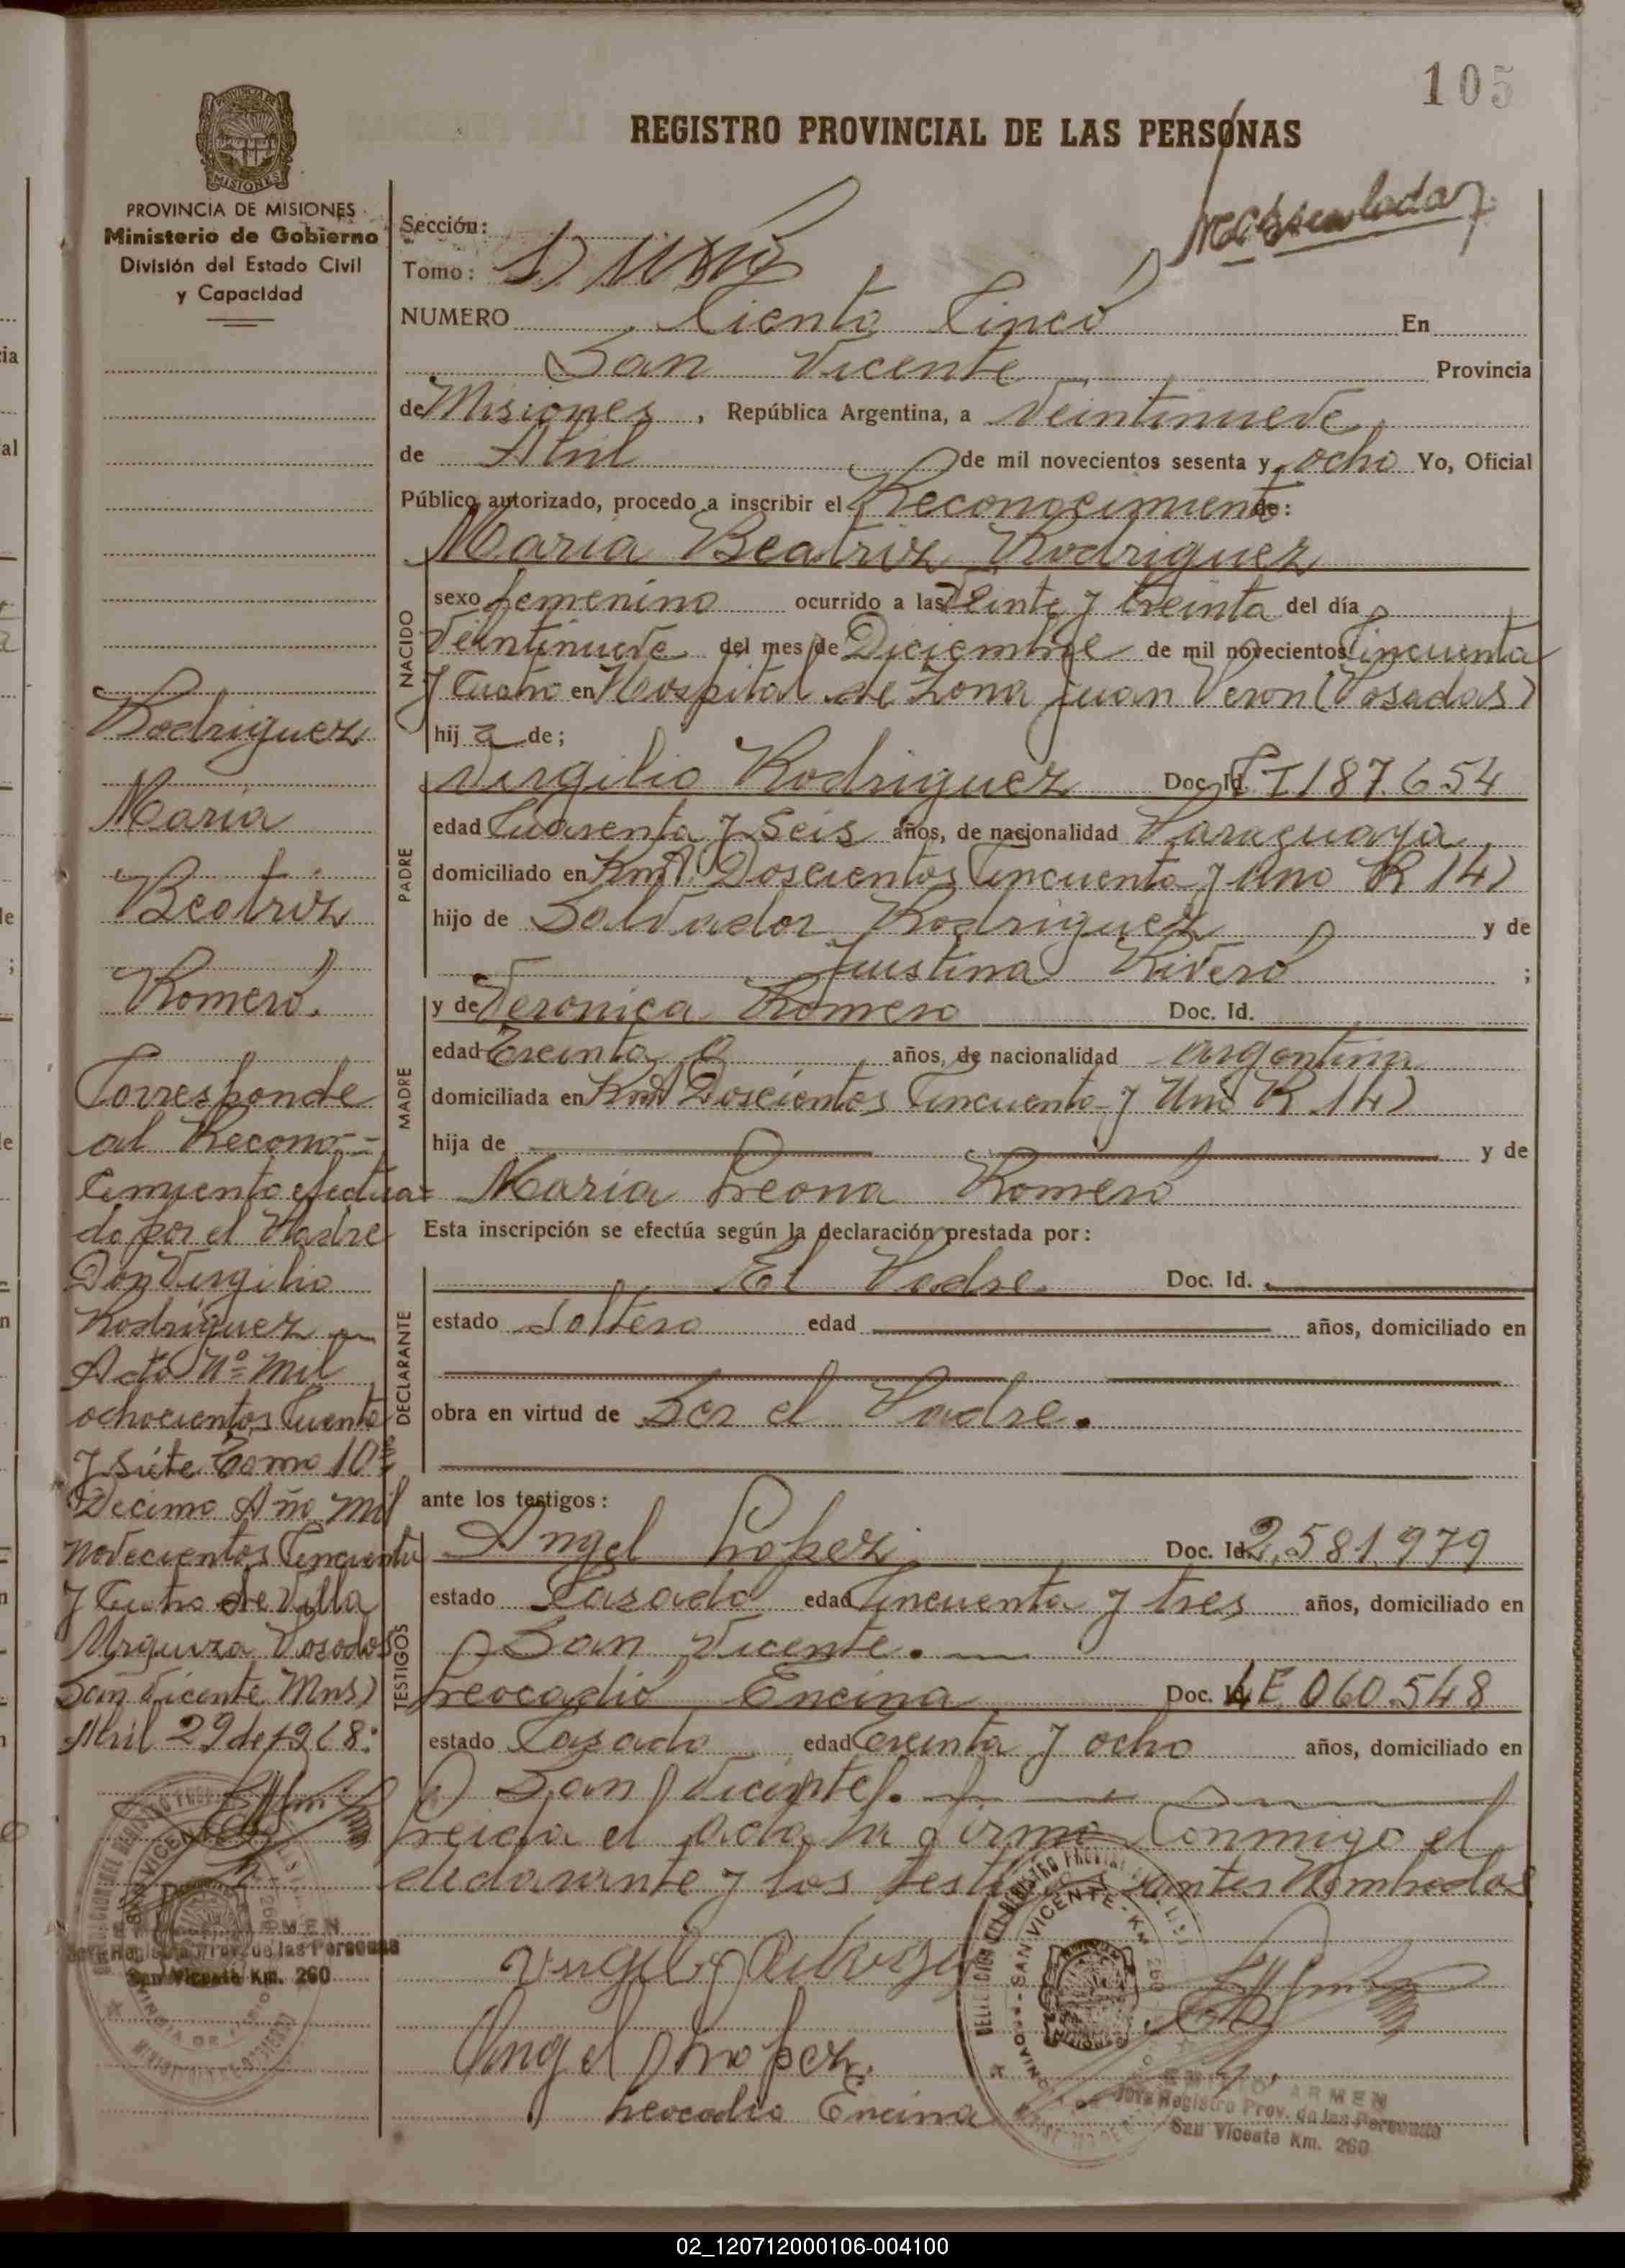 105
REGISTRO PROVINCIAL DE LAS PERSONAS
PROVINCIA DE MISIONES
Ministerio de Gobierno
División del Estado Civil
y Capacidad
Sección:
Tomo:
NUMERO Ciento Cinco En
San Vicente Provincia
de Misiones, República Argentina, a Veintinueve
de Abril de mil novecientos sesenta y ocho Yo, Oficial
Público autorizado, procedo a inscribir el Reconocimiento de:
Maria Beatriz Rodriguez
NACIDO
sexo femenino ocurrido a las Veinte y treinta del día
Veintinueve del mes de Diciembre de mil novecientos Cincuenta
y Cuatro en Hospital de Zona Juan Veron (Posadas)
hija de;
PADRE
Virgilio Rodriguez Doc. Id. CI 187.654
edad Cuarenta y Seis años, de nacionalidad Paraguaya
domiciliado en Kmt. Doscientos Cincuenta y Uno R 14)
hijo de Salvador Rodriguez y de
Justina Rivero ;
MADRE
y de Veronica Romero Doc. Id.
edad Treinta años, de nacionalidad argentina
domiciliada en Kmt Doscientos Cincuenta y Uno R 14)
hija de y de
Maria Leona Romero
Esta inscripción se efectúa según la declaración prestada por:
DECLARANTE
El Padre. Doc. Id.
estado Soltero edad años, domiciliado en
obra en virtud de Ser el Padre.
ante los testigos:
TESTIGOS
Angel Lopez Doc. Id. 2.581.979
estado Casado edad Cincuenta y tres años, domiciliado en
San Vicente.
Leocadio Encina Doc. LE 060.548
estado Casado edad Treinta y ocho años, domiciliado en
San Vicente.
Leida el acta la firma Conmigo el
declarante y los testigos antes Nombrados
Angel Lopez.
Leocadio Encina
Rodriguez
Maria
Beatriz
Romero.
Corresponde
al Recono-
cimiento efectua=
do por el Padre
Don Virgilio
Rodriguez
Acta Nº Mil
ochocientos Cuenta
y siete Tomo 10º
Decimo Año Mil
novecientos Cincuenta
y Cuatro de Villa
Urquiza Posadas
San Vicente Mns)
Abril 29 de 1968:
ARMEN
Jefe Registro Prov. de las Personas
San Vicente Km. 260
SAN VICENTE - KM 260
ARMEN
Jefe Registro Prov. de las Personas
San Vicente Km. 260
02_120712000106-004100